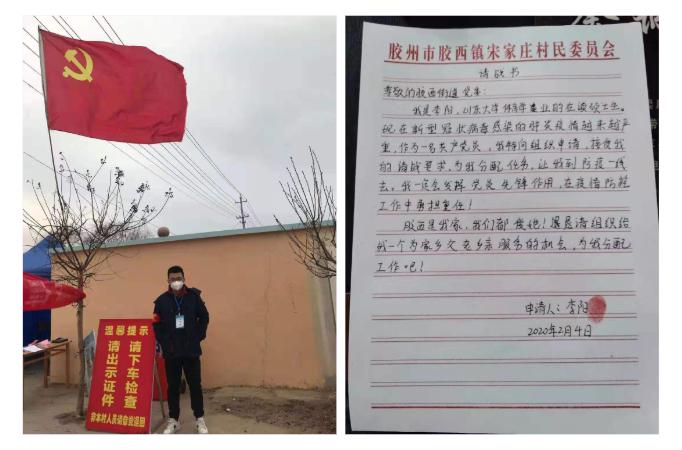 温馨提示
请下车检查
请出示证件
非本村人员请自觉返回
胶州市胶西镇宋家庄村民委员会
请战书
尊敬的胶西街道党委：
我是李阳，山东大学体育学专业的在读硕士生。
现在新型冠状病毒感染的肺炎疫情越来越严
重，作为一名共产党员，我特向组织申请，接受我
的请战要求，为我分配任务，让我到防疫一线
去，我一定会发挥党员先锋作用，在疫情防控
工作中勇担重任！
胶西是我家，我们都爱她！恳请组织给
我一个为家乡父老乡亲服务的机会，为我分配
工作吧！
申请人：李阳
2020年2月4日